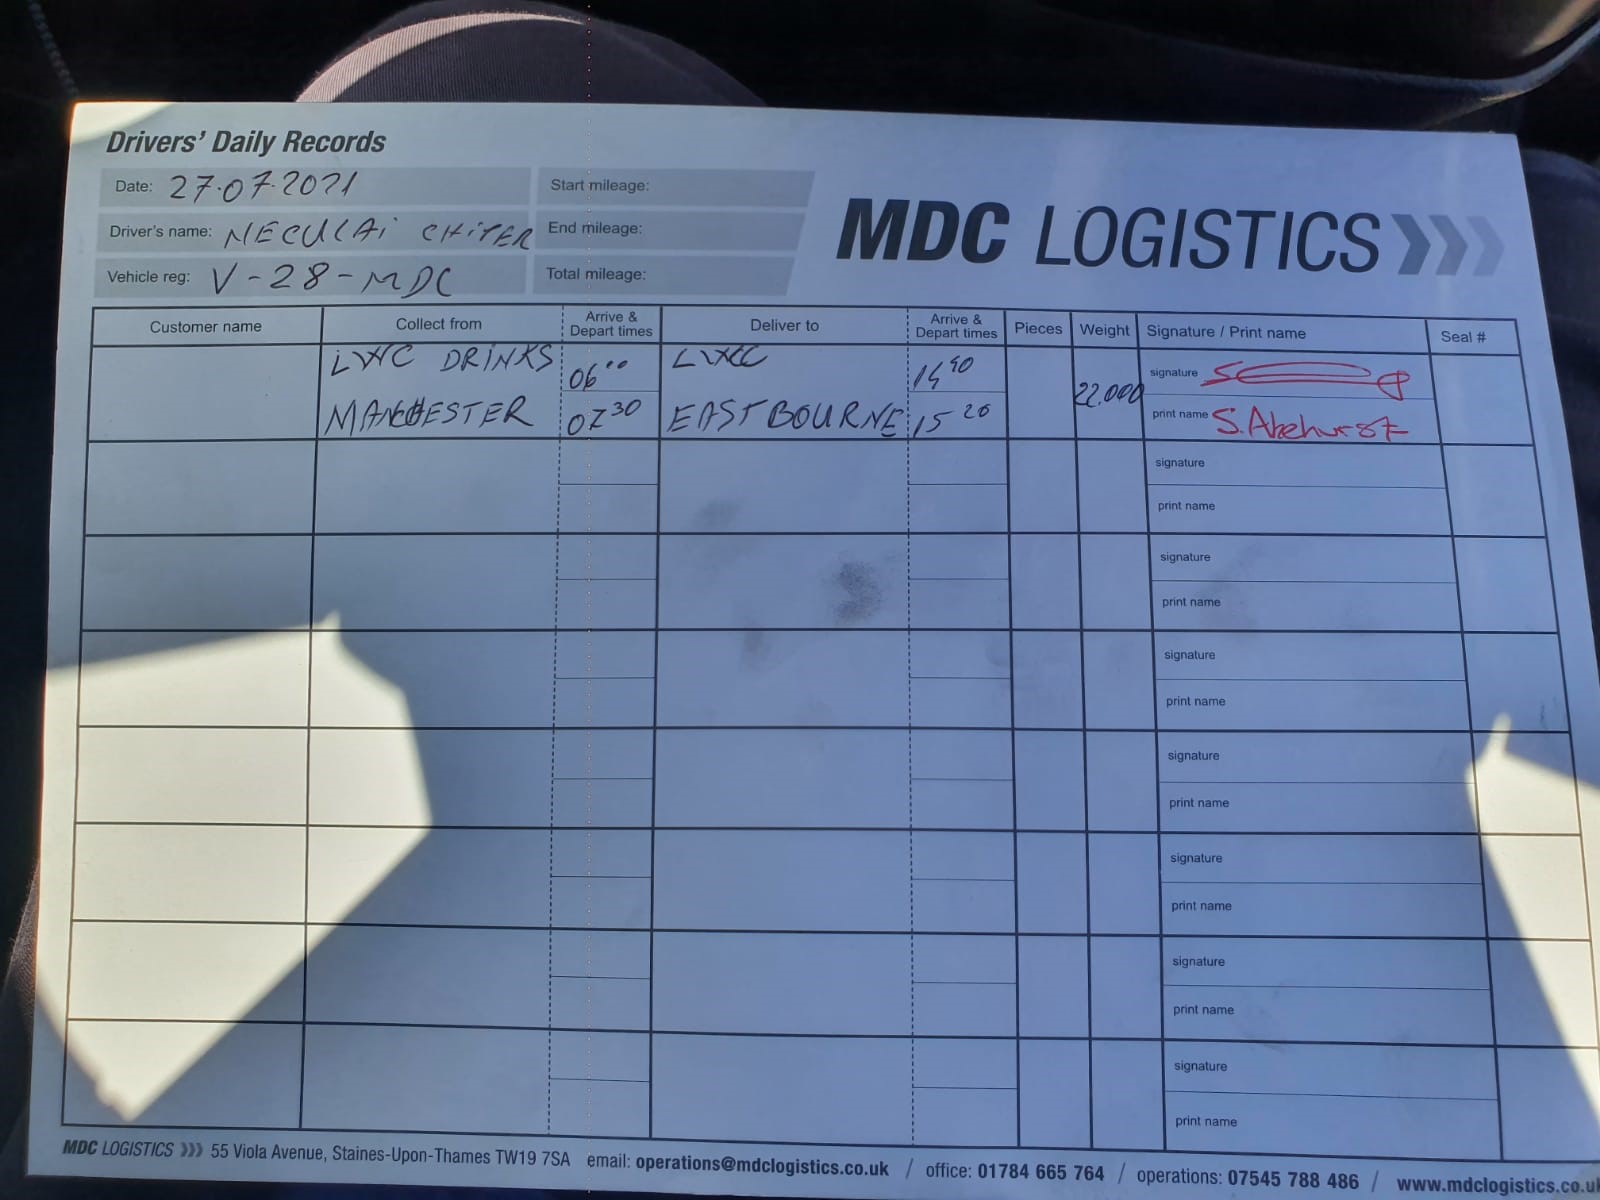 Drivers' Daily Records
Date: 27.07.2021
Start mileage:
Driver's name: NECULAI CHITER
End mileage:
Vehicle reg: V-28-MDC
Total mileage:
MDC LOGISTICS
Customer name Collect from Arrive & Depart times Deliver to Arrive & Depart times Pieces Weight Signature / Print name Seal #
LWC DRINKS 06 00 LWC 14 40 signature
MANCHESTER 07 30 EASTBOURNE 15 20 22.000 print name S. Akehurst
signature
print name
signature
print name
signature
print name
signature
print name
signature
print name
signature
print name
signature
print name
MDC LOGISTICS 55 Viola Avenue, Staines-Upon-Thames TW19 7SA email: operations@mdclogistics.co.uk / office: 01784 665 764 / operations: 07545 788 486 / www.mdclogistics.co.u